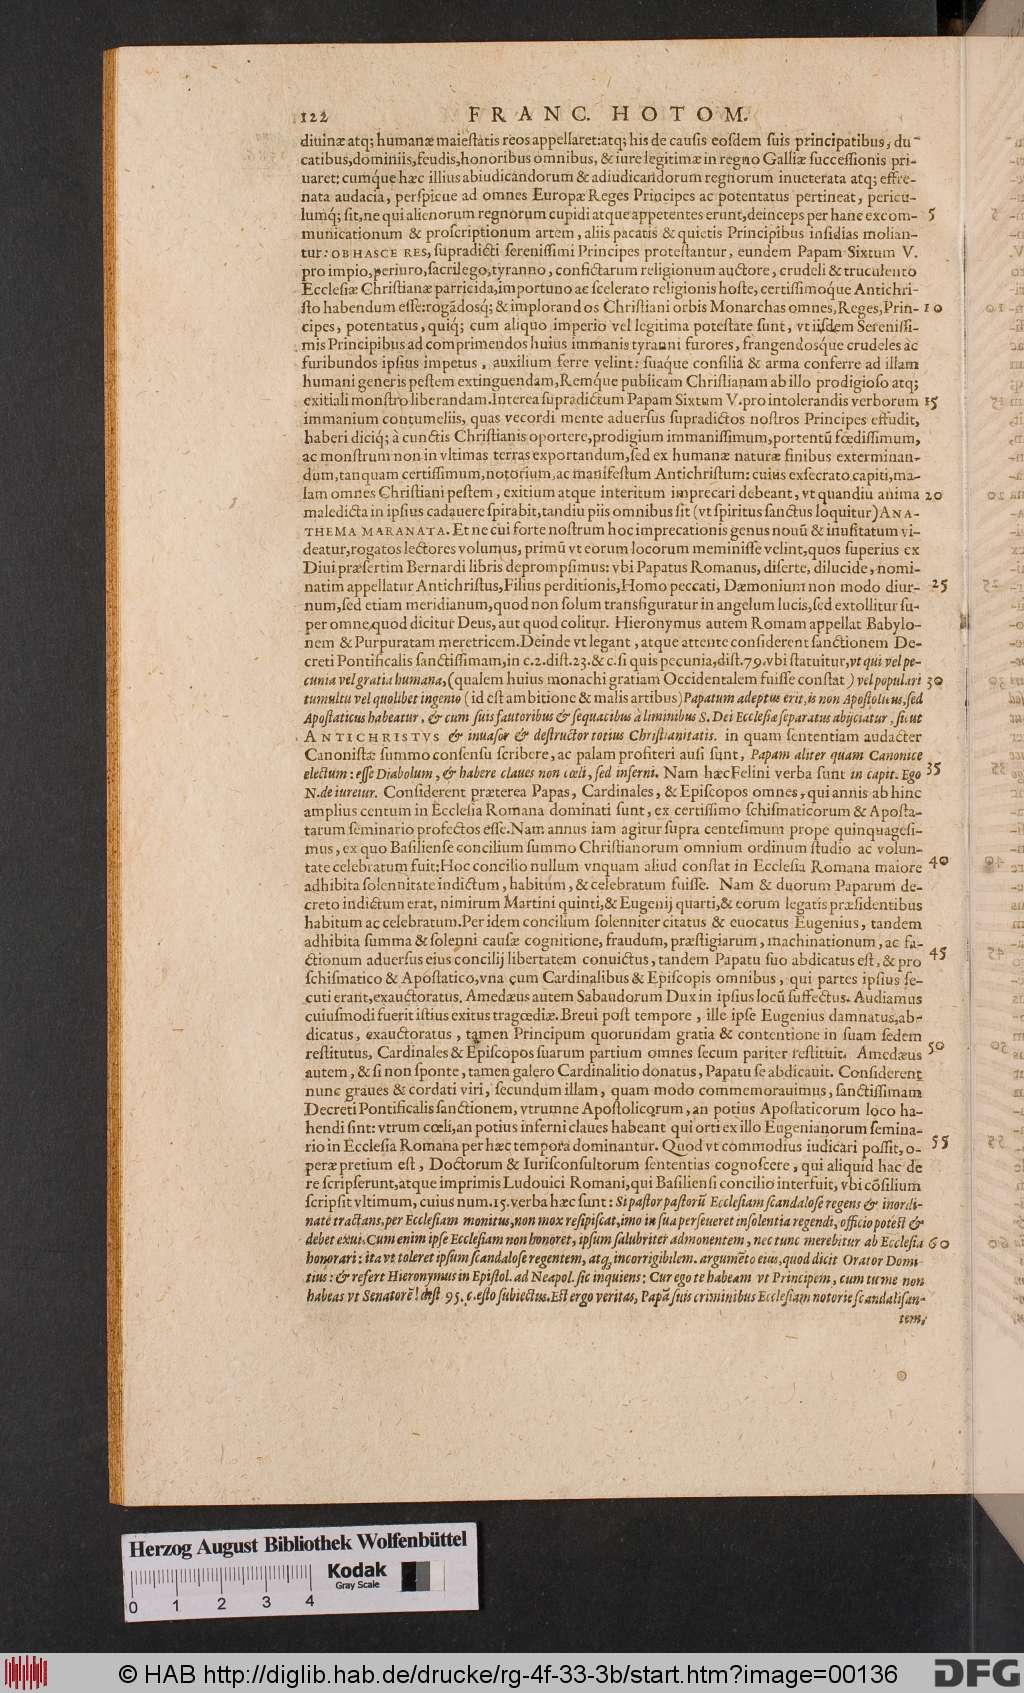 122 FRANC. HOTOM.
diuinæ atq; humanæ maiestatis reos appellaret: atq; his de causis eosdem suis principatibus, du-
catibus, dominiis, feudis, honoribus omnibus, & iure legitimæ in regno Galliæ successionis pri-
uaret: cumque hæc illius abiudicandorum & adiudicandorum regnorum inueterata atq; effre-
nata audacia, perspicue ad omnes Europæ Reges Principes ac potentatus pertineat, pericu-
lumq́; sit, ne qui alienorum regnorum cupidi atque appetentes erunt, deinceps per hanc excom- 5
municationum & proscriptionum artem, aliis pacatis & quietis Principibus insidias molian-
tur: OB HASCE RES, supradicti serenissimi Principes protestantur, eundem Papam Sixtum V.
pro impio, periuro, sacrilego, tyranno, confictarum religionum auctore, crudeli & truculento
Ecclesiæ Christianæ parricida, importuno ac scelerato religionis hoste, certissimoque Antichri-
sto habendum esse: rogādosq́; & implorandos Christiani orbis Monarchas omnes, Reges, Prin- 10
cipes, potentatus, quiq́; cum aliquo imperio vel legitima potestate sunt, vt iisdem Serenissi-
mis Principibus ad comprimendos huius immanis tyranni furores, frangendosque crudeles ac
furibundos ipsius impetus, auxilium ferre velint: suaque consilia & arma conferre ad illam
humani generis pestem extinguendam, Remque publicam Christianam ab illo prodigioso atq;
exitiali monstro liberandam. Interea supradictum Papam Sixtum V. pro intolerandis verborum 15
immanium contumeliis, quas vecordi mente aduersus supradictos nostros Principes effudit,
haberi diciq́; à cunctis Christianis oportere, prodigium immanissimum, portentū fœdissimum,
ac monstrum non in vltimas terras exportandum, sed ex humanæ naturæ finibus exterminan-
dum, tanquam certissimum, notorium, ac manifestum Antichristum: cuius exsecrato capiti, ma-
lam omnes Christiani pestem, exitium atque interitum imprecari debeant, vt quandiu anima 20
maledicta in ipsius cadauere spirabit, tandiu piis omnibus sit (vt spiritus sanctus loquitur) ANA-
THEMA MARANATA. Et ne cui forte nostrum hoc imprecationis genus nouū & inusitatum vi-
deatur, rogatos lectores volumus, primū vt eorum locorum meminisse velint, quos superius ex
Diui præsertim Bernardi libris depromsimus: vbi Papatus Romanus, diserte, dilucide, nomi-
natim appellatur Antichristus, Filius perditionis, Homo peccati, Dæmonium non modo diur- 25
num, sed etiam meridianum, quod non solum transfiguratur in angelum lucis, sed extollitur su-
per omne, quod dicitur Deus, aut quod colitur. Hieronymus autem Romam appellat Babylo-
nem & Purpuratam meretricem. Deinde vt legant, atque attente considerent sanctionem De-
creti Pontificalis sanctissimam, in c. 2. dist. 23. & c. si quis pecunia, dist. 79. vbi statuitur, vt qui vel pe-
cunia vel gratia humana, (qualem huius monachi gratiam Occidentalem fuisse constat) vel populari 30
tumultu vel quolibet ingenio (id est ambitione & malis artibus) Papatum adeptus erit, is non Apostolicus, sed
Apostaticus habeatur, & cum suis fautoribus & sequacibus à liminibus S. Dei Ecclesiæ separatus abijciatur, sicut
ANTICHRISTVS & inuasor & destructor totius Christianitatis. in quam sententiam audacter
Canonistæ summo consensu scribere, ac palam profiteri ausi sunt, Papam aliter quam Canonice
electum: esse Diabolum, & habere claues non cœli, sed inferni. Nam hæc Felini verba sunt in capit. Ego 35
N. de iureiur. Considerent præterea Papas, Cardinales, & Episcopos omnes, qui annis ab hinc
amplius centum in Ecclesia Romana dominati sunt, ex certissimo schismaticorum & Aposta-
tarum seminario profectos esse. Nam annus iam agitur supra centesimum prope quinquagesi-
mus, ex quo Basiliense concilium summo Christianorum omnium ordinum studio ac volun-
tate celebratum fuit: Hoc concilio nullum vnquam aliud constat in Ecclesia Romana maiore 40
adhibita solennitate indictum, habitum, & celebratum fuisse. Nam & duorum Paparum de-
creto indictum erat, nimirum Martini quinti, & Eugenij quarti, & eorum legatis præsidentibus
habitum ac celebratum. Per idem concilium solenniter citatus & euocatus Eugenius, tandem
adhibita summa & solenni causæ cognitione, fraudum, præstigiarum, machinationum, ac fa-
ctionum aduersus eius concilij libertatem conuictus, tandem Papatu suo abdicatus est, & pro 45
schismatico & Apostatico, vna cum Cardinalibus & Episcopis omnibus, qui partes ipsius se-
cuti erant, exauctoratus. Amedæus autem Sabaudorum Dux in ipsius locū suffectus. Audiamus
cuiusmodi fuerit istius exitus tragœdiæ. Breui post tempore, ille ipse Eugenius damnatus, ab-
dicatus, exauctoratus, tamen Principum quorundam gratia & contentione in suam sedem
restitutus, Cardinales & Episcopos suarum partium omnes secum pariter restituit. Amedæus 50
autem, & si non sponte, tamen galero Cardinalitio donatus, Papatu se abdicauit. Considerent
nunc graues & cordati viri, secundum illam, quam modo commemorauimus, sanctissimam
Decreti Pontificalis sanctionem, vtrumne Apostolicorum, an potius Apostaticorum loco ha-
hendi sint: vtrum cœli, an potius inferni claues habeant qui orti ex illo Eugenianorum semina-
rio in Ecclesia Romana per hæc tempora dominantur. Quod vt commodius iudicari possit, o- 55
peræ pretium est, Doctorum & Iurisconsultorum sententias cognoscere, qui aliquid hac de
re scripserunt, atque imprimis Ludouici Romani, qui Basiliensi concilio interfuit, vbi cōsilium
scripsit vltimum, cuius num. 15. verba hæc sunt: Si pastor pastorū Ecclesiam scandalose regens & inordi-
nate tractans, per Ecclesiam monitus, non mox resipiscat, imo in sua perseueret insolentia regendi, officio potest &
debet exui. Cum enim ipse Ecclesiam non honoret, ipsum salubriter admonentem, nec tunc merebitur ab Ecclesia 60
honorari: ita vt toleret ipsum scandalose regentem, atq, incorrigibilem. argumēto eius, quod dicit Orator Domi-
tius: & refert Hieronymus in Epistol. ad Neapol. sic inquiens: Cur ego te habeam vt Principem, cum tu me non
habeas vt Senatorē! dist 95. c. esto subiectus. Est ergo veritas, Papā suis criminibus Ecclesiam notorie scandalisan-
tem,
Herzog August Bibliothek Wolfenbüttel
Kodak
Gray Scale
0 1 2 3 4
© HAB http://diglib.hab.de/drucke/rg-4f-33-3b/start.htm?image=00136
DFG